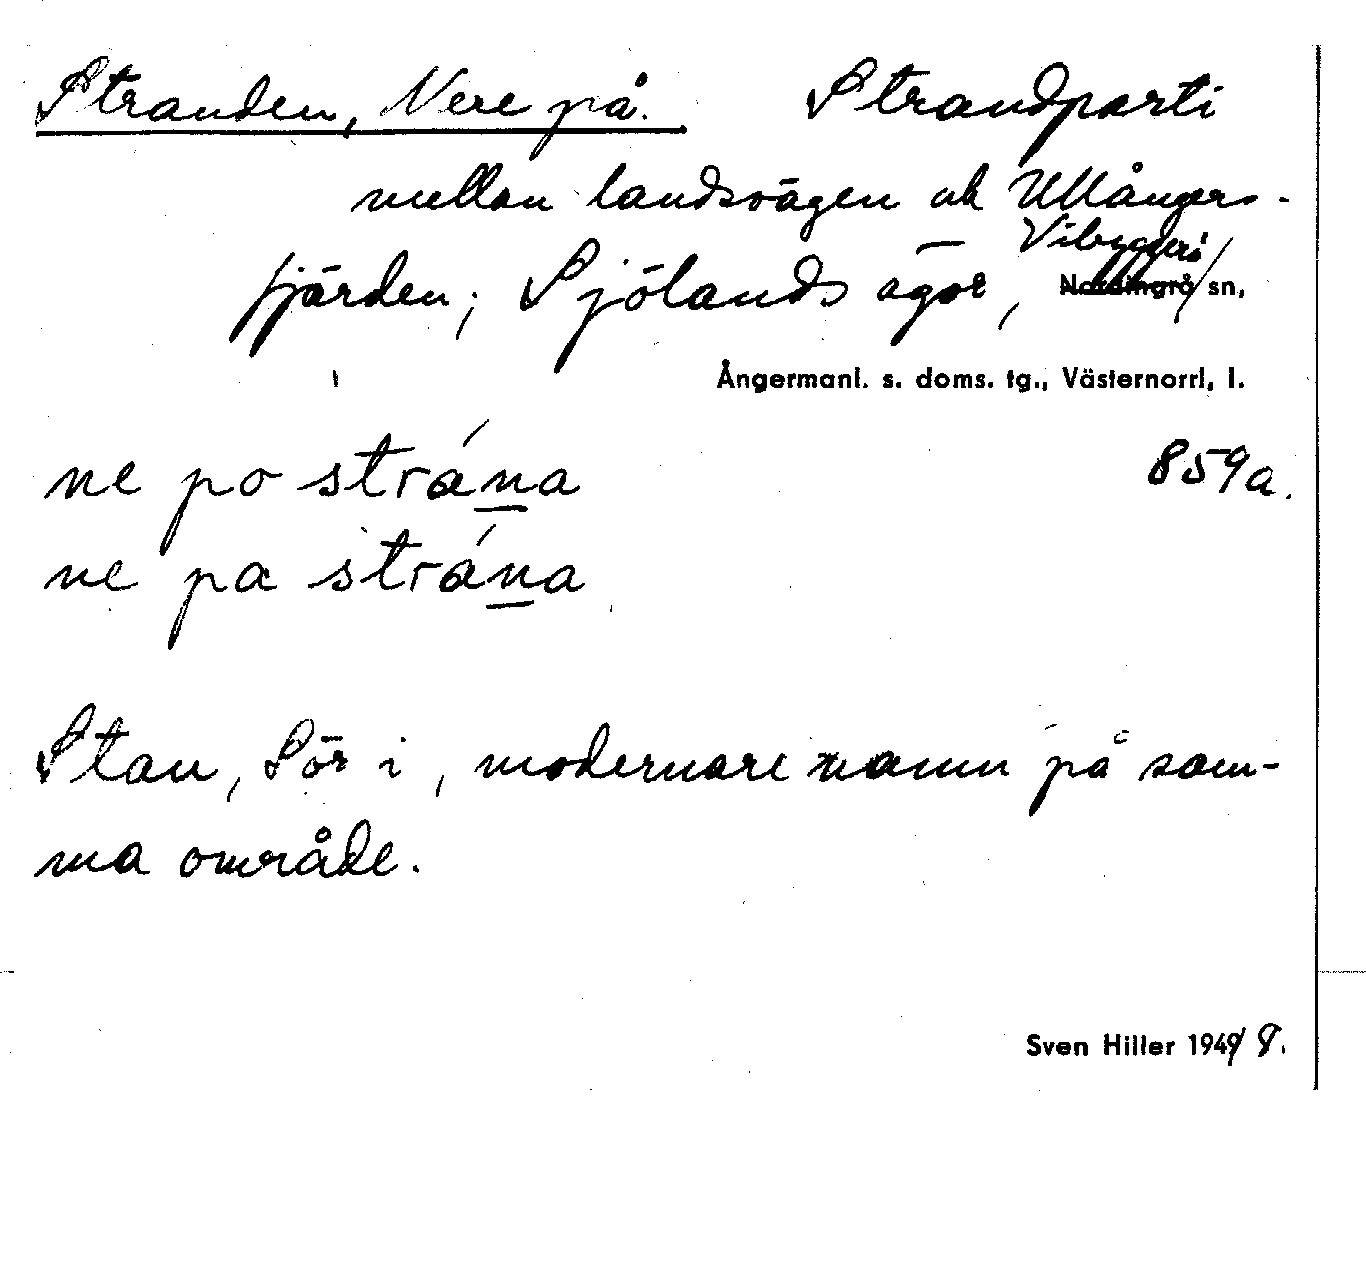 Stranden, Nere på. Strandparti
mellan landsvägen och Ullångers-
fjärden; Sjölands ägor, Vibyggerå
Nordingrå sn,
Ångermanl. s. doms. tg., Västernorrl. l.
859a.
ne po strána
ne pa strána
Stan, Sör i, modernare namn på sam-
ma område.
Sven Hiller 1949 8.